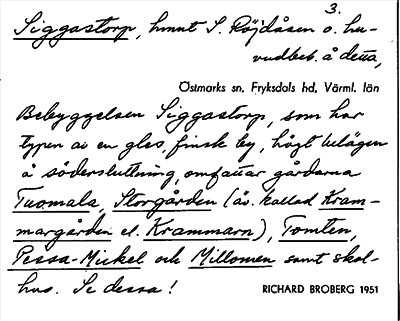 3.
Siggastorp, hmnt S. Röjdåsen o. hu-
vudbet. å detta,
Östmarks sn, Fryksdals hd, Värml. län
Bebyggelsen Siggastorp, som har
typen av en gles, finsk by, högt belägen
å södersluttning, omfattar gårdarna
Tuomala, Storgården (äv. kallad Kram-
margården el. Krammarn), Tomten,
Pessa-Mickel och Millomen samt skol-
hus. Se dessa!
RICHARD BROBERG 1951